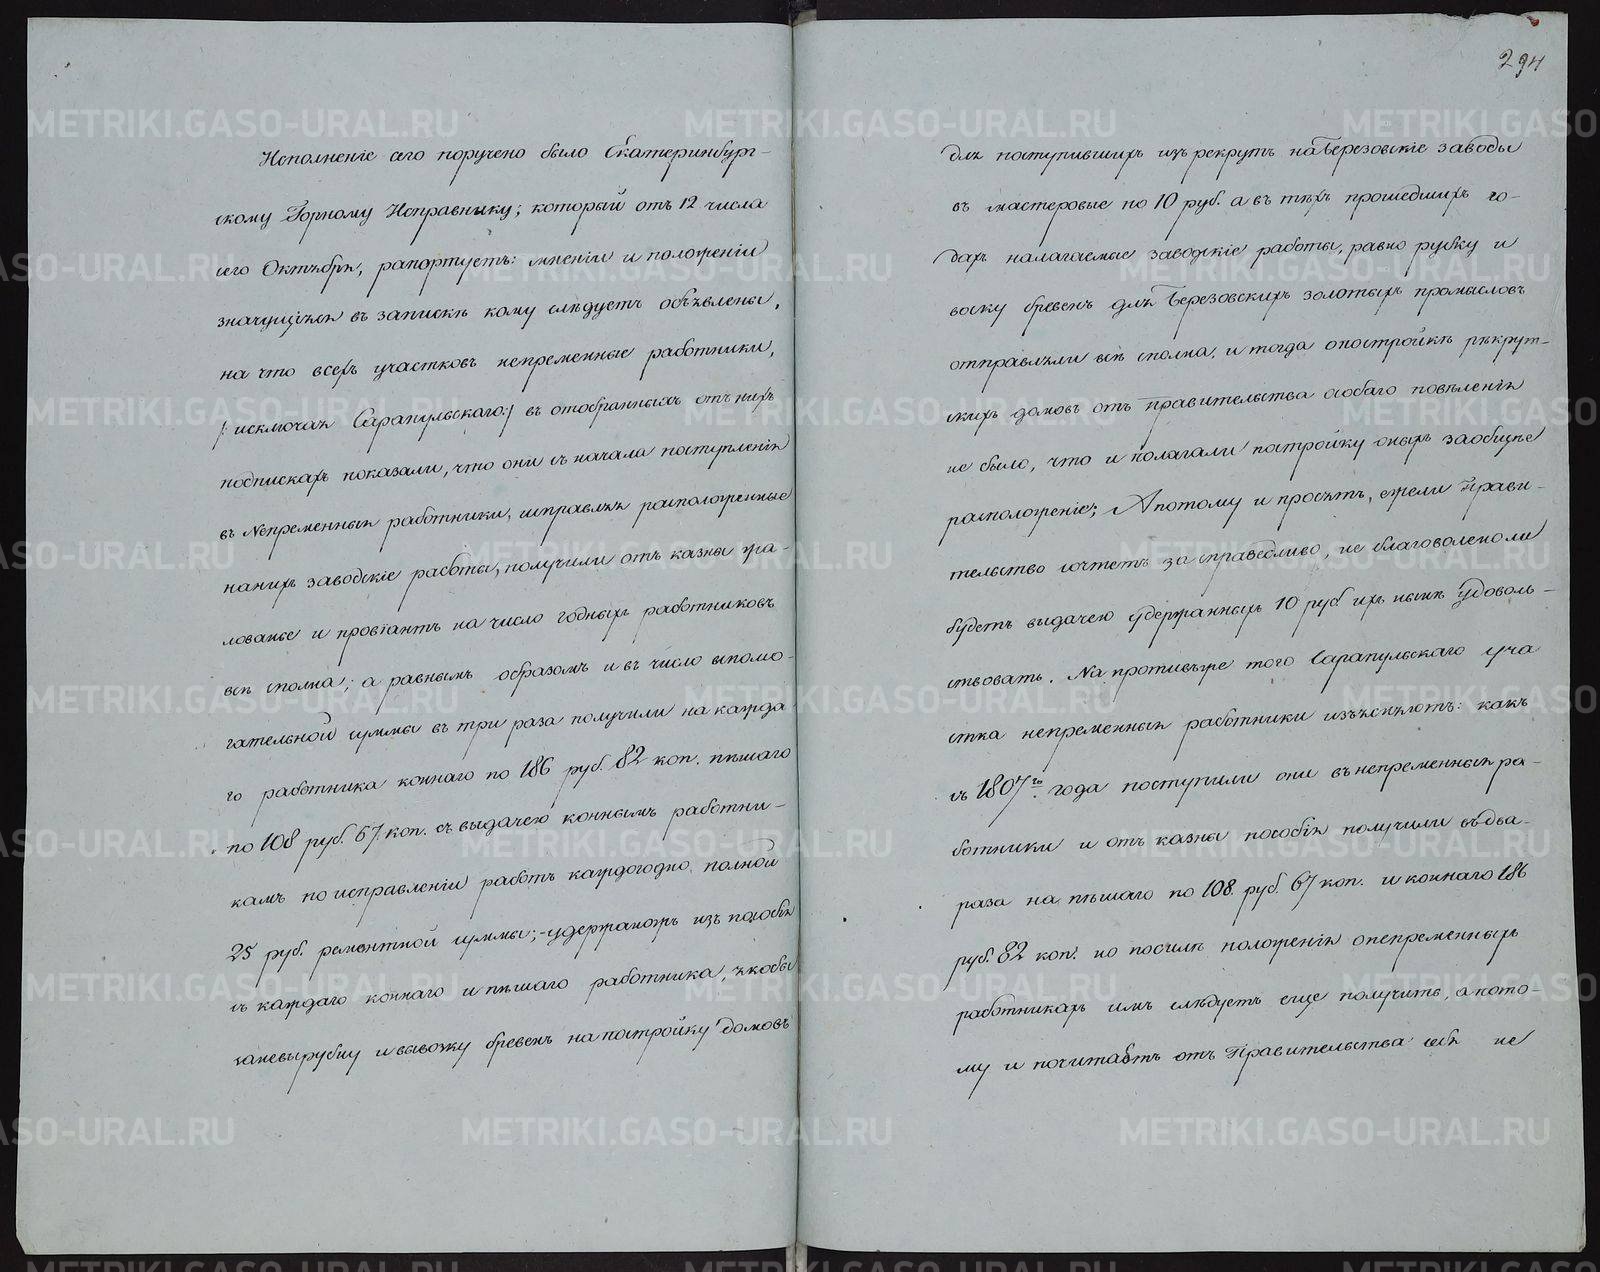 Исполненіе сего поручено было Екатеринбург-
скому Горному Исправнику; который отъ 12 числа
сего Октября, рапортуетъ: мненіи и положеніи
значущіяся въ запискѣ кому слѣдуетъ объявлены,
на что всехъ участковъ непременные работники,
/: исключая Сарапульскаго :/ въ отобранныхъ отъ нихъ
подпискахъ показали, что они съ начала поступленія
въ Непременныя работники, исправляя расположенные
нанихъ заводскіе работы, получили отъ казны жа-
лованье и провіантъ на число годныхъ работниковъ
всѣ сполна; а равнымъ образомъ и въ число вспомо-
гательной суммы въ три раза получили на каждa
го работника коннаго по 186 руб. 82 коп. пѣшаго
по 108 руб. 67 коп. съ выдачею коннымъ работни-
камъ по исправленіи работъ каждогодно полной
25 руб. ремонтной суммы; удержаножъ изъ пособія
съ каждаго коннаго и пѣшаго работника, якобы
заневырубку и вывозку бревенъ на постройку домовъ
294
для поступившихъ изъ рекрутъ на Березовскіе заводы
въ мастеровые по 10 руб. а въ тѣхъ прошедшихъ го-
дахъ налагаемые заводскіе работы, равно рубку и
воску бревенъ для Березовскихъ золотыхъ промысловъ
отправляли всѣ сполна, и тогда опостройкѣ рѣкрут-
скихъ домовъ отъ правительства особаго повѣленія
не было, что и полагали постройку оныхъ заобщее
расположеніе; Апотому и просятъ, ежели Прави-
тельство сочтетъ за справедливо, не благоволеноли
будетъ выдачею удержанныхъ 10 руб. ихъ нынѣ удоволь-
ствовать. На противъже того Сарапульскаго уча
стка непременныя работники изъясняютъ: какъ
съ 1807го года поступили они въ непременныя ра-
ботники и отъ казны пособія получили въ два-
раза на пѣшаго по 108. руб. 67 коп. и коннаго 186
руб. 82 коп. но посилѣ положенія онепременныхъ
работникахъ имъ слѣдуетъ еще получить, а пото-
му и почитаютъ отъ Правительства себя не